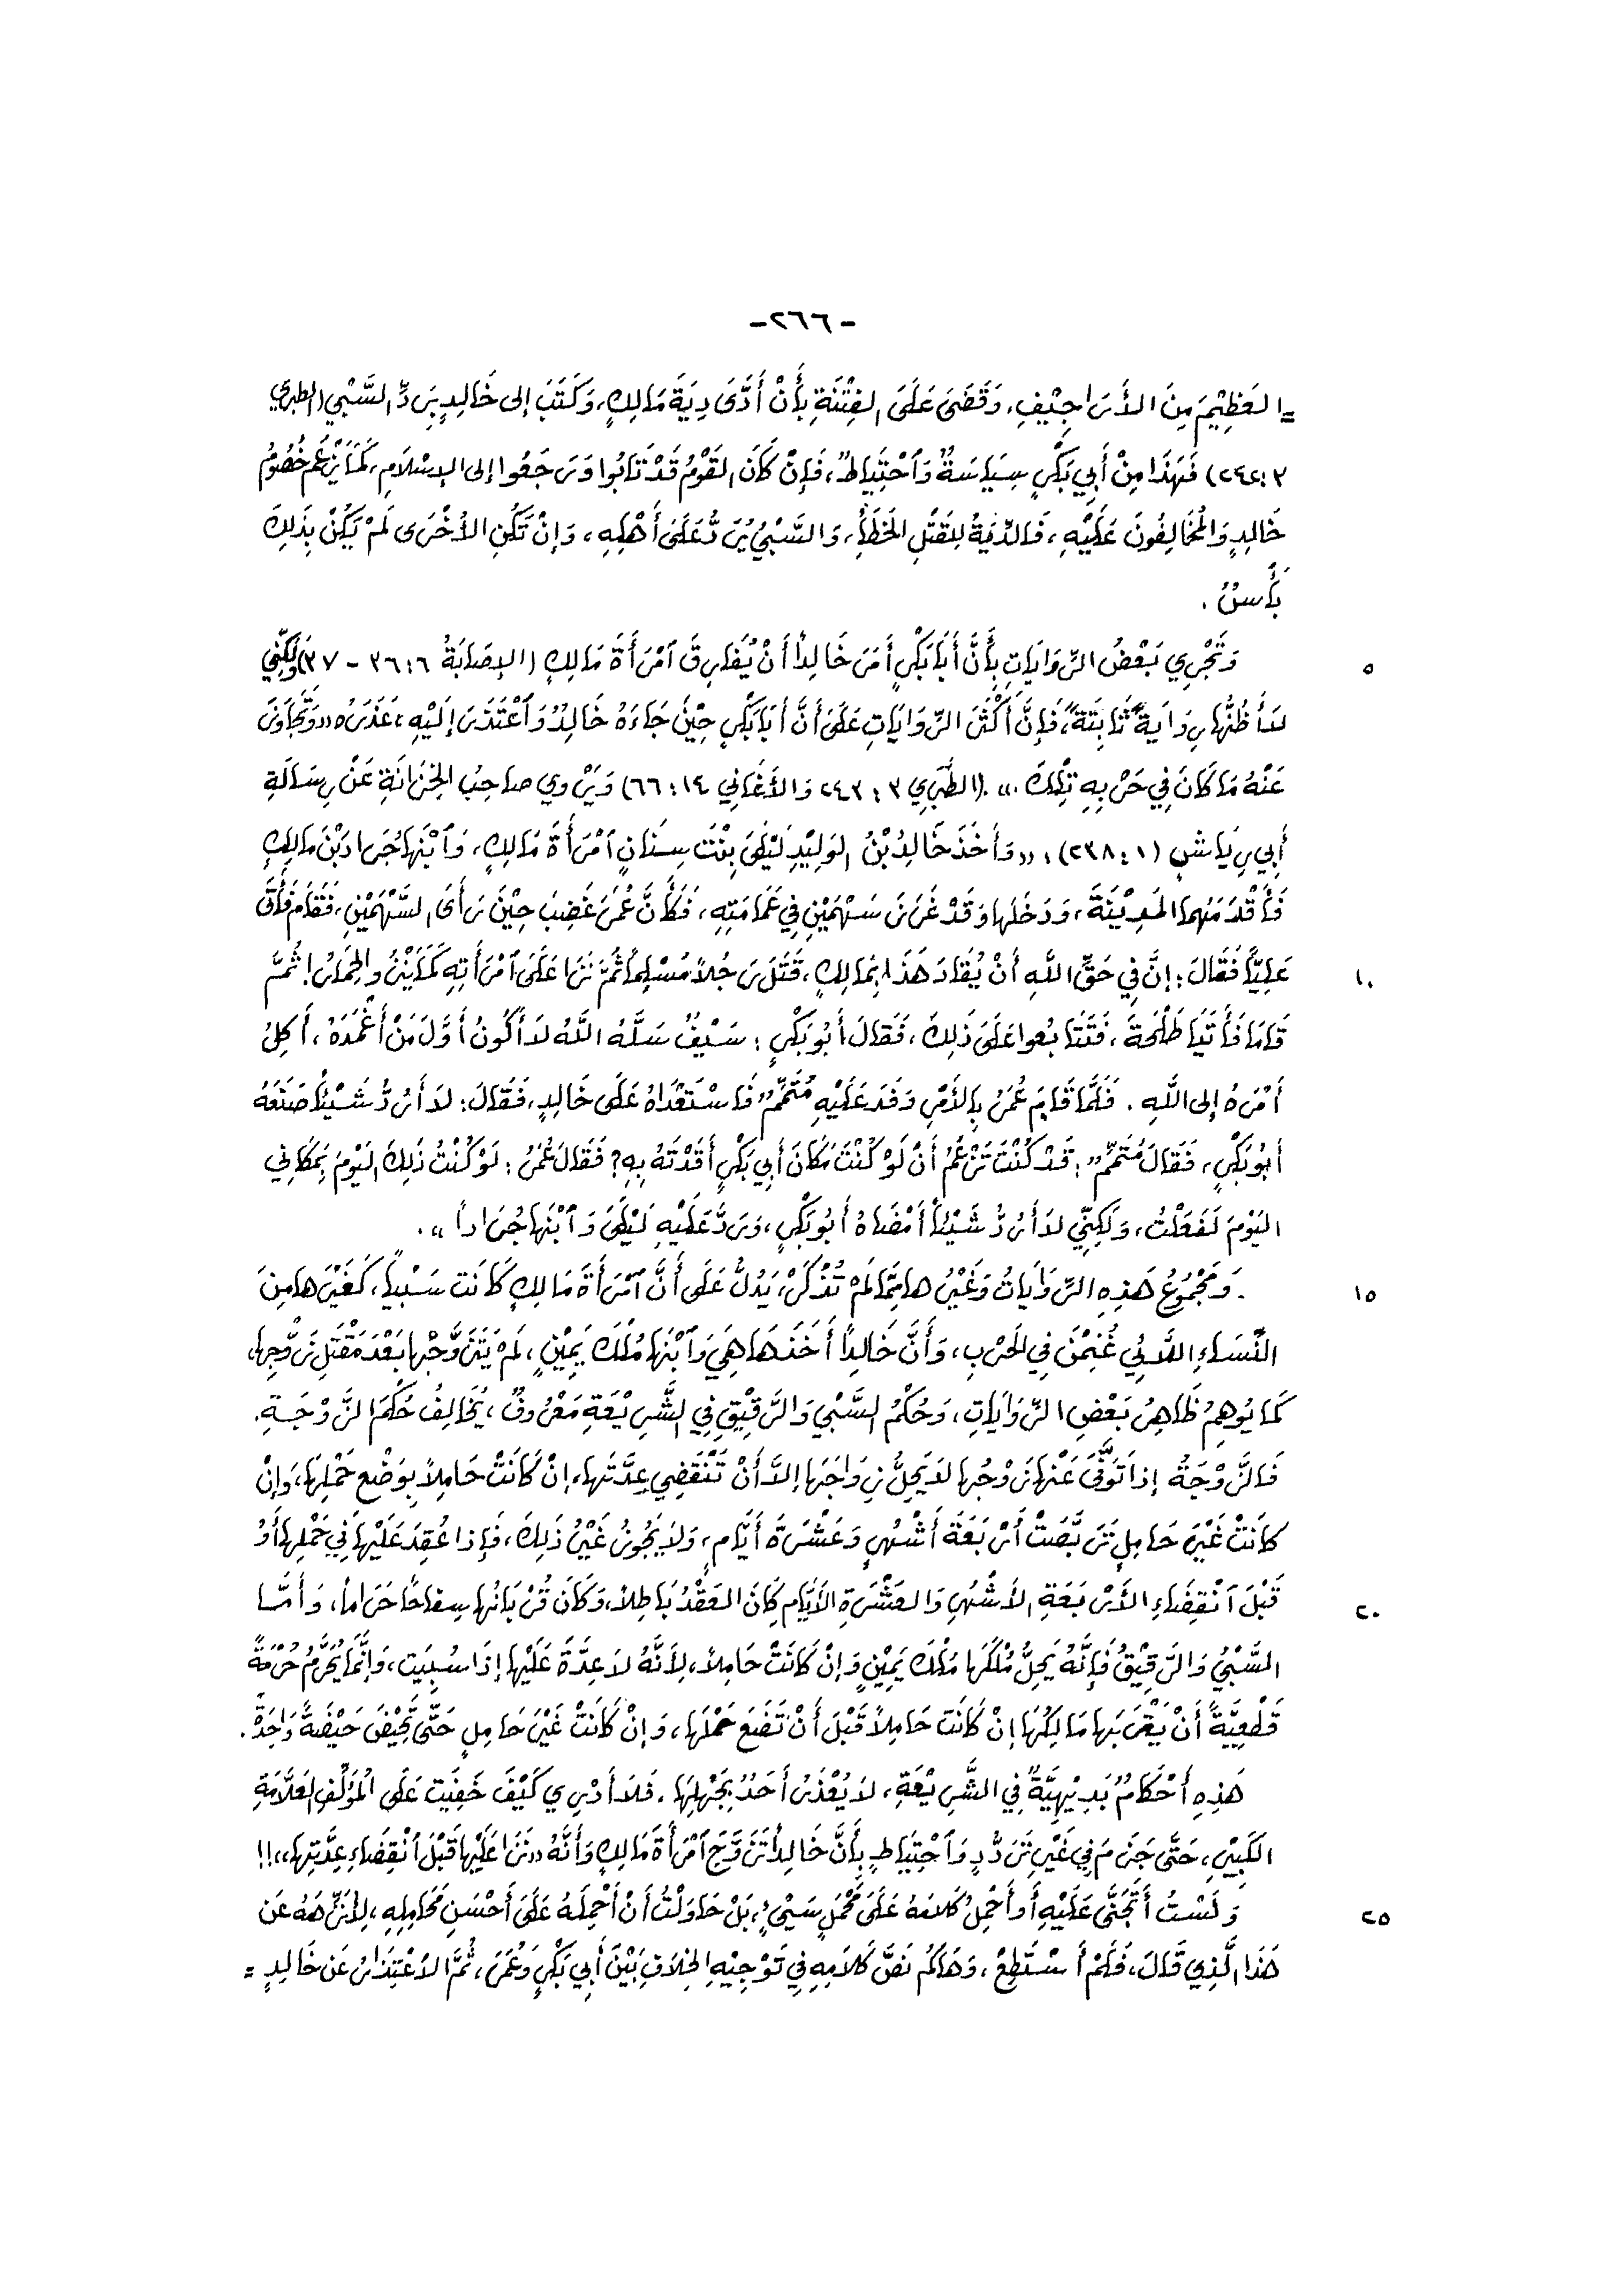 -٢٦٦-
= العَظِيْمَ مِنَ الأَرَاجِيْفِ، وَقَضَى عَلَى الفِتْنَةِ بِأَنْ أَدَّى دِيَةَ مَالِكٍ، وَكَتَبَ إِلى خَالِدٍ بِرَدِّ السَّبْيِ (الطبري
٣ :٢٤٢) فَهَذَا مِنْ أَبِي بَكْرٍ سِيَاسَةٌ وَٱحْتِيَاطٌ، فَإِنْ كَانَ القَوْمُ قَدْ تَابُوا وَرَجَعُوا إِلى الإِسْلَامِ، كَمَا يَزْعُمُ خُصُومُ
خَالِدٍ وَالمُخَالِفُونَ عَلَيْهِ، فَالدِّيَةُ لِلقَتْلِ الخَطَأِ، وَالسَّبْيُ يُرَدُّ عَلَى أَهْلِهِ، وَإِنْ تَكُنِ الأُخْرَى لَمْ يَكُنْ بِذَلِكَ
بَأْسٌ .
٥ وَتَجْرِي بَعْضُ الرِّوَايَاتِ بِأَنَّ أَبَا بَكْرٍ أَمَرَ خَالِداً أَنْ يُفَارِقَ ٱمْرَأَةَ مَالِكٍ (الإِصَابَةُ ٦: ٣٦ - ٣٧) وَلَكِنِّي
لَا أَظُنُّهَا رِوَايَةً ثَابِتَةً، فَإِنَّ أَكْثَرَ الرِّوَايَاتِ عَلَى أَنَّ أَبَا بَكْرٍ حِيْنَ جَاءَهُ خَالِدٌ وَٱعْتَذَرَ إِلَيْهِ، عَذَرَهُ «وَتَجَاوَزَ
عَنْهُ مَا كَانَ فِي حَرْبِهِ تِلْكَ .» .(الطَّبَرِي ٣ : ٢٤٣ وَالأَغَانِي ١٤ : ٦٦) وَيَرْوِي صَاحِبُ الخِزَانَةِ عَنْ رِسَالَةِ
أَبِي رِيَاشٍ (١ :٢٣٨) : «وَأَخَذَ خَالِدُ بْنُ الوَلِيْدِ لَيْلَى بِنْتَ سِنَانٍ ٱمْرَأَةَ مَالِكٍ، وَٱبْنَهَا جُرَادَ بْنَ مَالِكٍ
فَأَقْدَمَهُمَا المَدِيْنَةَ، وَدَخَلَهَا وَقَدْ غَرَزَ سَهْمَيْنِ فِي عَمَامَتِهِ، فَكَأَنَّ عُمَرَ غَضِبَ حِيْنَ رَأَى السَّهْمَيْنِ، فَقَامَ فَأَتَى
١٠ عَلِيّاً فَقَالَ : إِنَّ فِي حَقِّ اللَّهِ أَنْ يُقَادَ هَذَا بِمَالِكٍ، قَتَلَ رَجُلاً مُسْلِماً ثُمَّ نَزَا عَلَى ٱمْرَأَتِهِ كَمَا يَنْزُو الحِمَارُ! ثُمَّ
قَامَا فَأَتَيَا طَلْحَةَ، فَتَتَابَعُوا عَلَى ذَلِكَ، فَقَالَ أَبُو بَكْرٍ : سَيْفٌ سَلَّهُ اللَّهُ لَا أَكُونُ أَوَّلَ مَنْ أَغْمَدَهُ، أَكِلُ
أَمْرَهُ إِلى اللَّهِ . فَلَمَّا قَامَ عُمَرُ بِالأَمْرِ وَفَدَ عَلَيْهِ مُتَمِّمٌ فَاسْتَعْدَاهُ عَلَى خَالِدٍ، فَقَالَ: لَا أَرُدُّ شَيْئاً صَنَعَهُ
أَبُو بَكْرٍ، فَقَالَ مُتَمِّمٌ : قَدْ كُنْتَ تَزْعُمُ أَنْ لَوْ كُنْتَ مَكَانَ أَبِي بَكْرٍ أَقَدْتَهُ بِهِ؟ فَقَالَ عُمَرُ: لَوْ كُنْتُ ذَلِكَ اليَوْمَ بِمَكَانِي
اليَوْمَ لَفَعَلْتُ، وَلَكِنِّي لَا أَرُدُّ شَيْئاً أَمْضَاهُ أَبُو بَكْرٍ، وَرَدَّ عَلَيْهِ لَيْلَى وَٱبْنَهَا جُرَاداً » .
١٥ . وَمَجْمُوعُ هَذِهِ الرِّوَايَاتُ وَغَيْرُهَا مِمَّا لَمْ تُذْكَرْ، يَدُلُّ عَلَى أَنَّ ٱمْرَأَةَ مَالِكٍ كَانَت سَبْياً، كَغَيْرِهَا مِنَ
النِّسَاءِ اللاَّتِي غُنِمْنَ فِي الحَرْبِ، وَأَنَّ خَالِداً أَخَذَهَا هِيَ وَٱبْنَهَا مُلْكَ يَمِيْنٍ، لَمْ يَتَزَوَّجْهَا بَعْدَ مَقْتَلِ زَوْجِهَا،
كَمَا يُوهِمُ ظَاهِرُ بَعْضِ الرِّوَايَاتِ، وَحُكْمُ السَّبْيِ وَالرَّقِيْقِ فِي الشَّرِيْعَةِ مَعْرُوفٌ، يُخَالِفُ حُكْمَ الزَّوْجَةِ.
فَالزَّوْجَةُ إِذَا تَوَفَّى عَنْهَا زَوْجُهَا لَا يَحِلُّ زِوَاجَهَا إِلاَّ أَنْ تَنْقَضِي عِدَّتَهَا، إِنْ كَانَتْ حَامِلاً بِوَضْعِ حَمْلِهَا، وَإِنْ
كَانَتْ غَيْرَ حَامِلٍ تَرَبَّصَتْ أَرْبَعَةَ أَشْهُرٍ وَعَشْرَةَ أَيَّامٍ، وَلَا يَجُوزُ غَيْرُ ذَلِكَ، فَإِذَا عُقِدَ عَلَيْهَا فِي حَمْلِهَا أَوْ
٢٠ قَبْلَ ٱنْقِضَاءِ الأَرْبَعَةِ الأَشْهُرِ وَالعَشْرَةِ الأَيَّامِ كَانَ العَقْدُ بَاطِلاً، وَكَانَ قُرْبَانُهَا سِفَاحاً حَرَاماً، وَأَمَّا
السَّبْيُ وَالرَّقِيْقُ فَإِنَّهُ يَحِلُّ مُلْكُهَا مُلْكَ يَمِيْنٍ وَإِنْ كَانَتْ حَامِلاً، لِأَنَّهُ لَا عِدَّةَ عَلَيْهَا إِذَا سُبِيَت، وَإِنَّمَا يُحَرَّمُ حُرْمَةً
قَطْعِيَّةً أَنْ يَقْرَبَهَا مَالِكُهَا إِنْ كَانَت حَامِلاً قَبْلَ أَنْ تَضَعَ حَمْلَهَا، وَإِنْ كَانَتْ غَيْرَ حَامِلٍ حَتَّى تَحِيْضَ حَيْضَةً وَاحِدَةً .
هَذِهِ أَحْكَامٌ بَدِيْهِيَّةٌ فِي الشَّرِيْعَةِ، لَا يُعْذَرُ أَحَدٌ بِجَهْلِهَا . فَلَا أَدْرِي كَيْفَ خَفِيَت عَلَى المُؤَلِّفِ العَلاَّمَةِ
الكَبِيْرِ، حَتَّى جَزَمَ فِي غَيْرِ تَرَدُّدٍ وَٱحْتِيَاطٍ بِأَنَّ خَالِداً تَزَوَّجَ ٱمْرَأَةَ مَالِكٍ وَأَنَّهُ «نَزَا عَلَيْهَا قَبْلَ ٱنْقِضَاءِ عِدَّتِهَا»!!
٢٥ وَلَسْتُ أَتَجَنَّى عَلَيْهِ أَو أَحْمِلُ كَلَامَهُ عَلَى مَحْمَلٍ سَيِّئٍ، بَلْ حَاوَلْتُ أَنْ أَحْمِلَهُ عَلَى أَحْسَنِ مَحَامِلِهِ، لِأُنَزِّهَهُ عَن
هَذَا الَّذِي قَالَ، فَلَمْ أَسْتَطِعْ، وَهَاكُم نَصَّ كَلَامِهِ فِي تَوْجِيْهِ الخِلَافِ بَيْنَ أَبِي بَكْرٍ وَعُمَرَ، ثُمَّ الاعْتِذَارُ عَن خَالِدٍ =